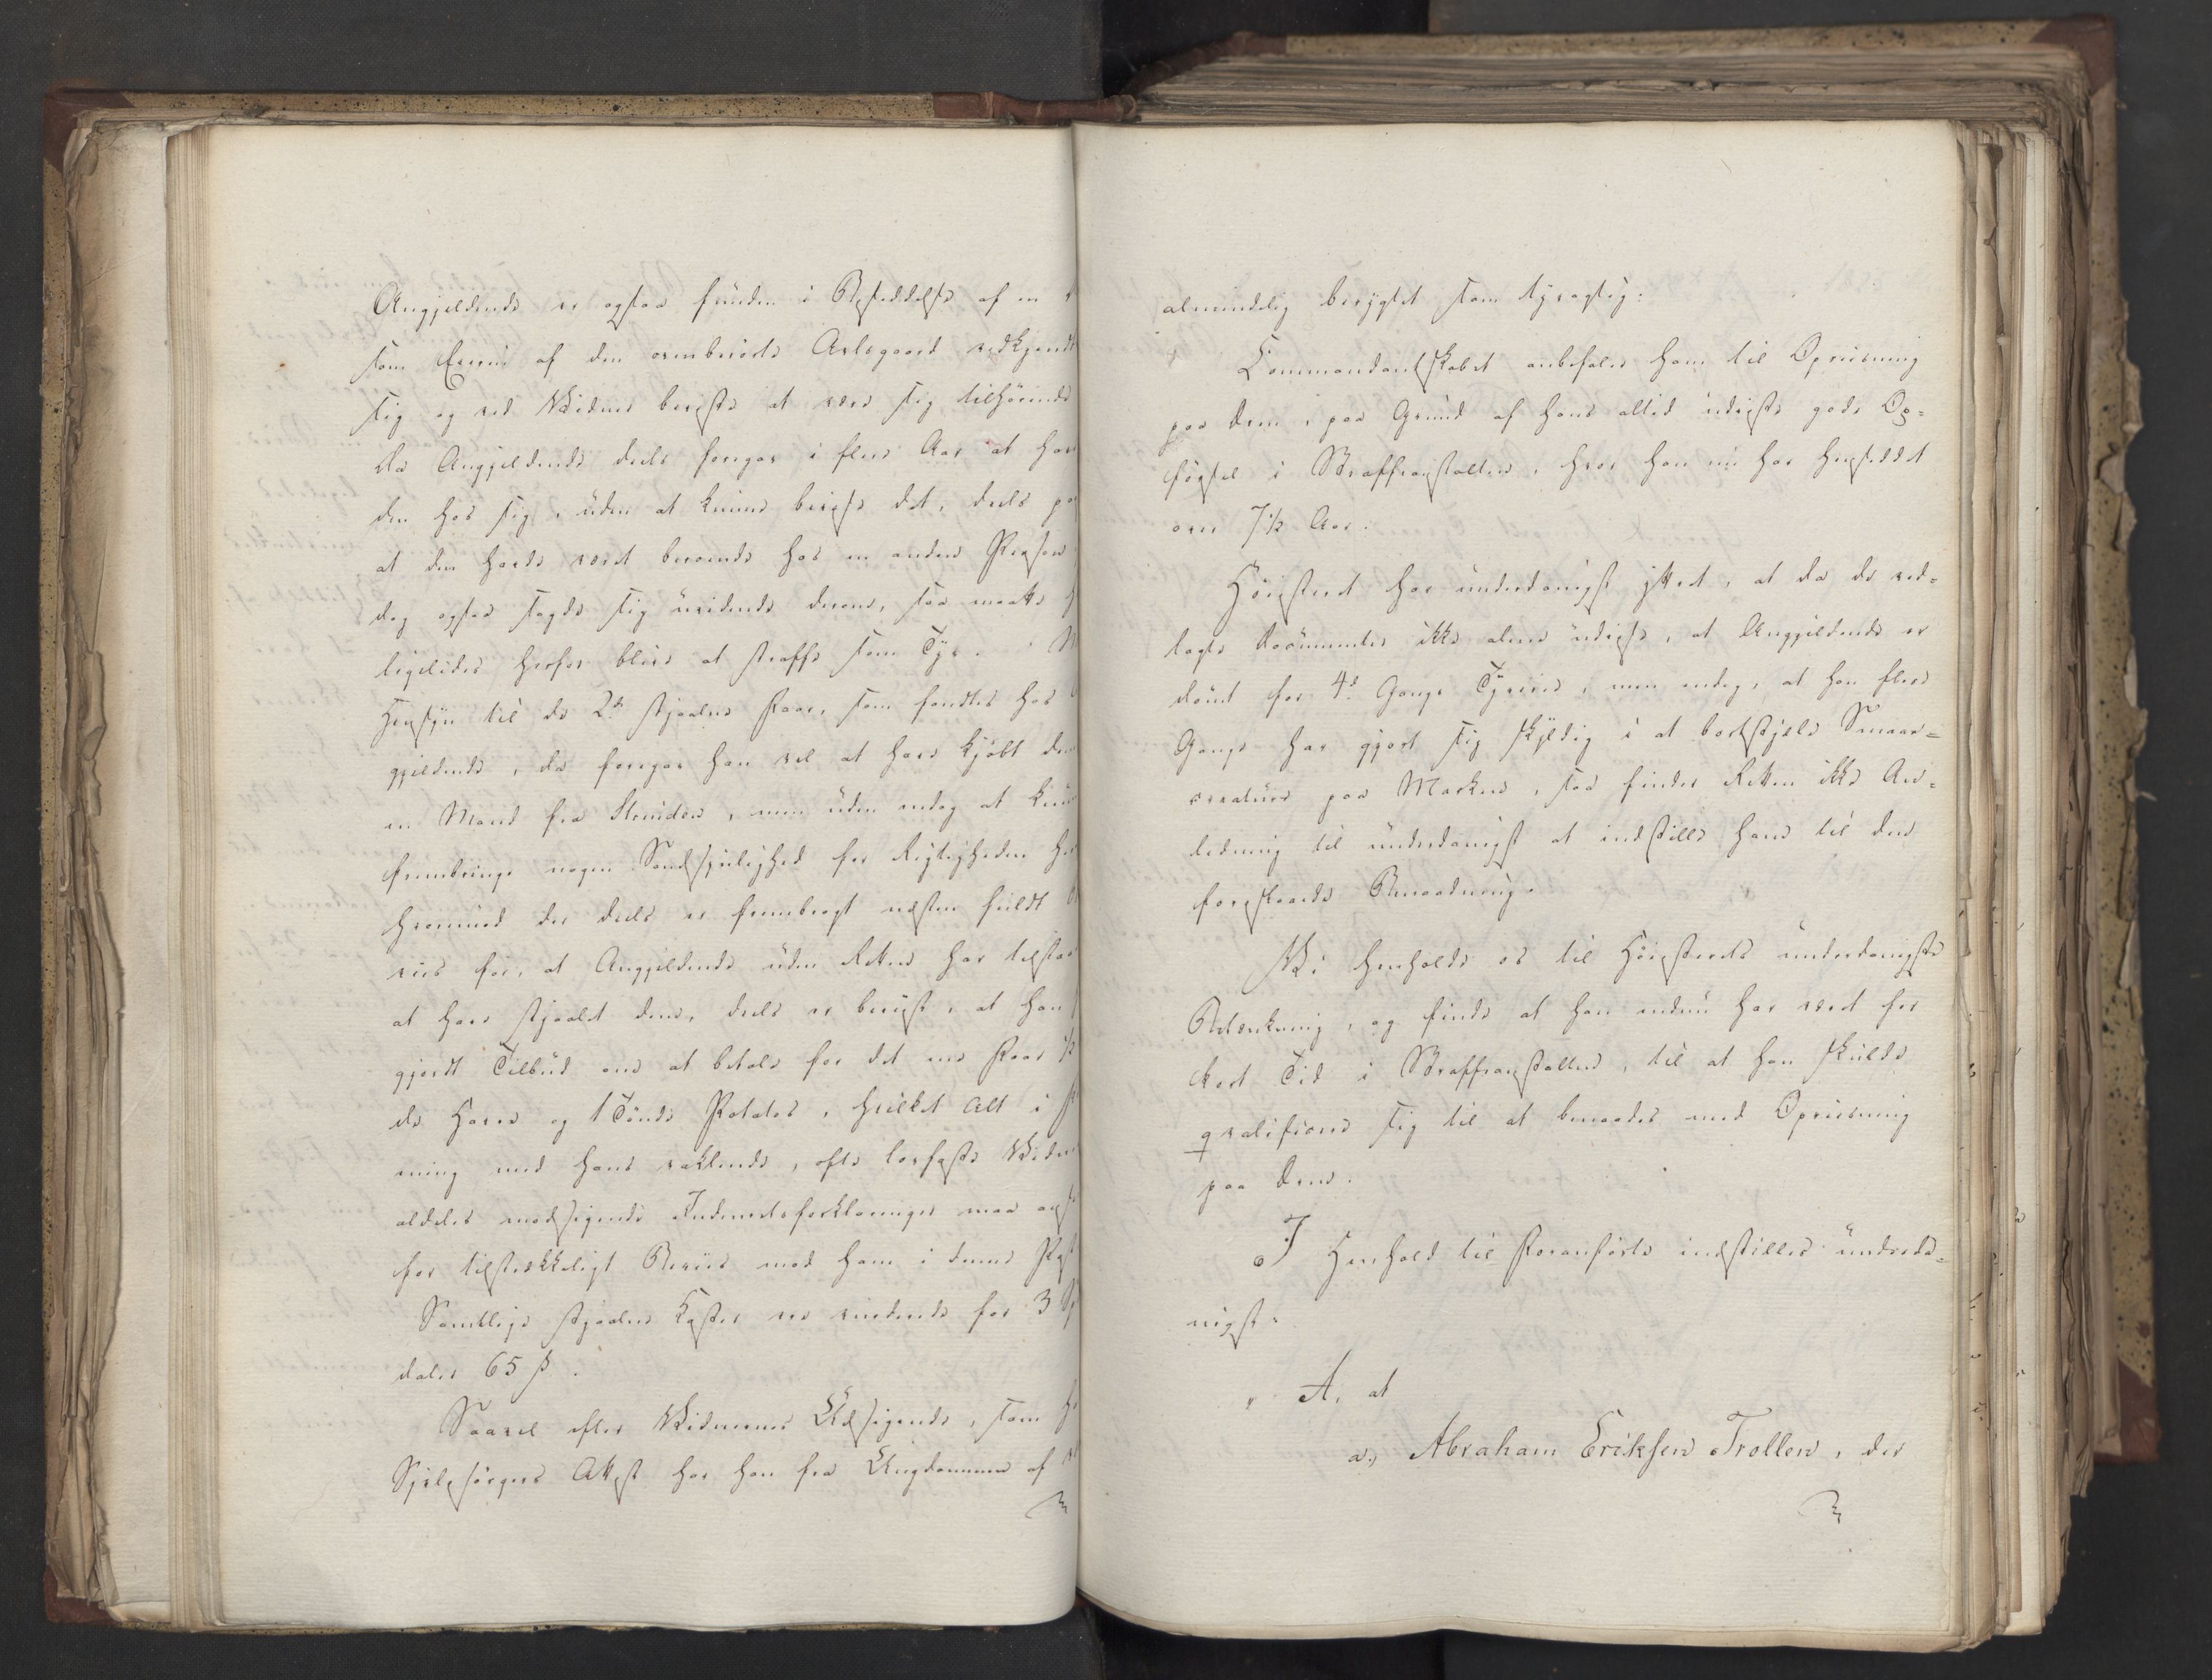 Angjeldende er ogsaa funden i Besiddelse af en
som Eierne af den ovenberørte Aalegaard vedkjendte
sig og ved Vidner beviste at være sig tilhørende
Da Angjeldende deels foregav i flere Aar at have
den hos sig, uden at kunne bevise det, deels paa
at den havde været beroende hos en anden Person
dog ogsaa sagde sig uvidende derom, saa maatte
ligeledes herfor blive at straffe som Tyv.
Hensyn til de 2de stjaalne Faar, som fandtes hos
gjeldende, da foregav han vel at have kjøbt dem
en Mand fra Strinden, men uden endog at kunne
frembringe nogen Sandsynlighed for Rigtigheden
hvorimod der deels er frembragt næsten fuldt
viis for, at Angjeldende uden Retten har tilstaaet
at have stjaalet dem, deels er beviist, at han
gjordt Tilbud om at betale for det ene Faar 1/2
de Havre og 1 Tønde Potatos, hvilket Alt i
ning med hans vaklende, ofte lovfaste Vidner
aldeles modsigende Indenretsforklaringer maa
for tilstrækkeligt Beviis mod ham i denne
Samtlige stjaalne Koster ere vurderede for 3
daler 65 ß.
Saavel efter Vidnernes Udsigende, som
Sjælesørgers Attest har han fra Ungdommen af
almindelig berygtet som tyvagtig:
Commandantskabet anbefaler ham til Opreisning
paa Æren, paa Grund af hans altid udviste gode Op=
førsel i Straffeanstalten, hvor han nu har hensiddet
over 7 1/2 Aar.
Høiesteret har underdanigst yttret, at da de ved=
lagte Documenter ikke alene udvise, at Angjeldende er
dømt for 4de Gangs Tyverie, men endog, at han flere
Gange har gjort sig skyldig i at bortstjæle Smaae=
creature paa Marken, saa finder Retten ikke An=
ledning til underdanigst at indstille ham til den
foreslaaede Benaadning.
Vi henholde os til Høiesterets underdanigste
Betænkning, og finde at han endnu har været for
kort Tid i Straffeanstalten, til at han skulde
qvalificere sig til at benaades med Opreisning
paa Æren.
I Henhold til Foranførte indstilles underda=
nigst:
A, at
a., Abraham Eriksen Trollen, der